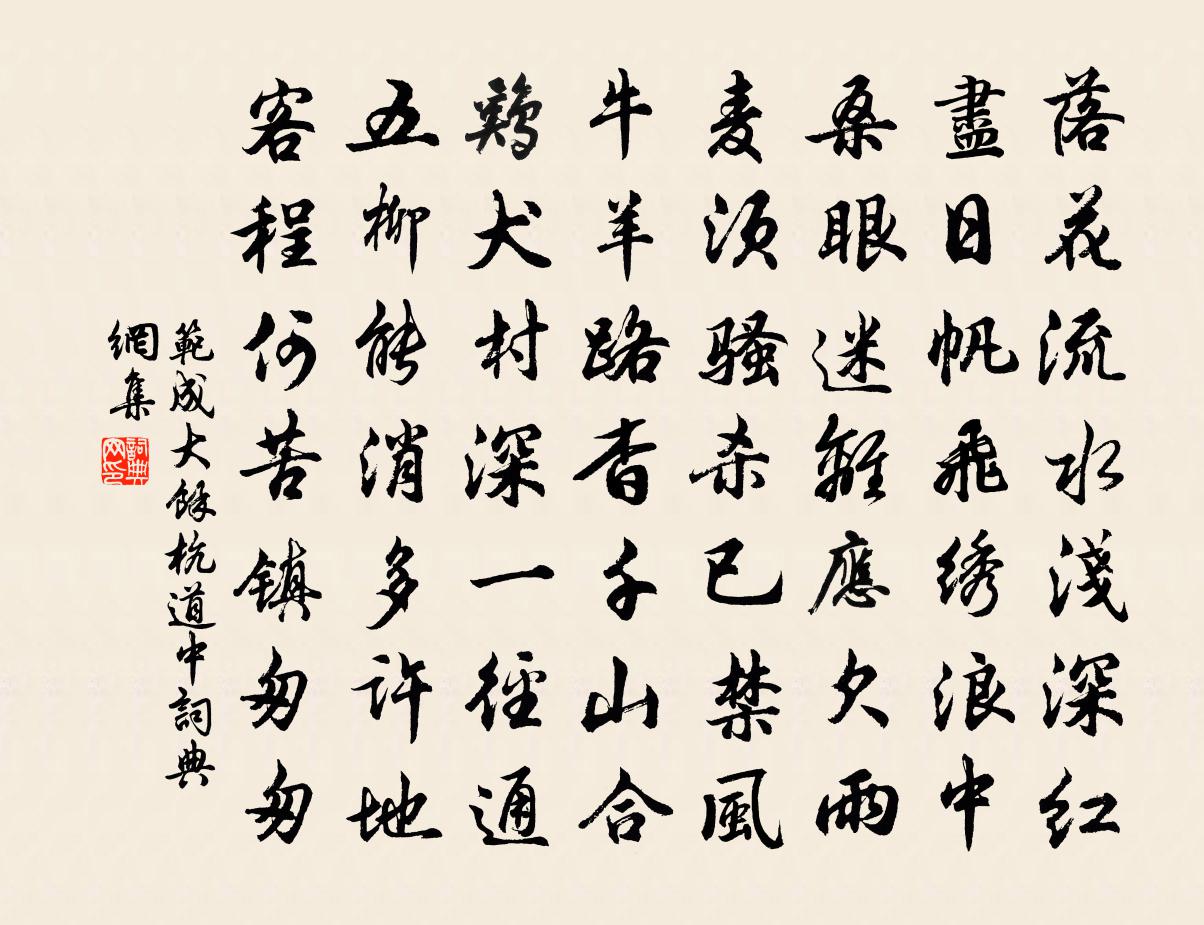 落花流水淺深红
盡日帆飛绣浪中
桑眼迷離應欠雨
麦须骚杀已禁風
牛羊路杳千山合
鷄犬村深一徑通
五柳能消多許地
客程何苦镇匆匆
範成大餘杭道中詞典
網集
詞典
网印